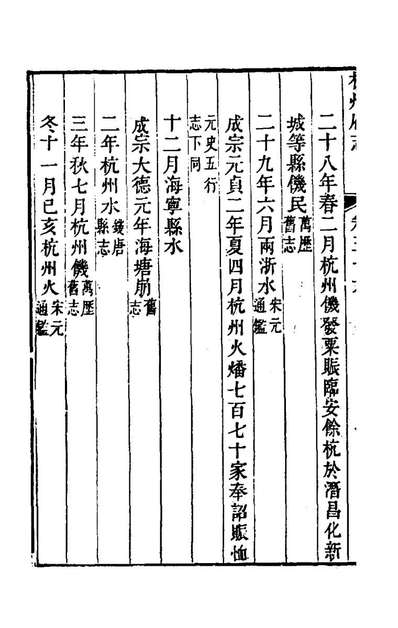 杭州府志
二十八年春二月杭州饑發粟賑臨安餘杭於潛昌化新
城等縣饑民萬歷舊志
二十九年六月兩浙水宋元通鑑
成宗元貞二年夏四月杭州火燔七百七十家奉詔賑恤
元史五行志下同
十二月海寧縣水
成宗大德元年海塘崩舊志
二年杭州水錢唐縣志
三年秋七月杭州饑萬歷舊志
冬十一月己亥杭州火宋元通鑑